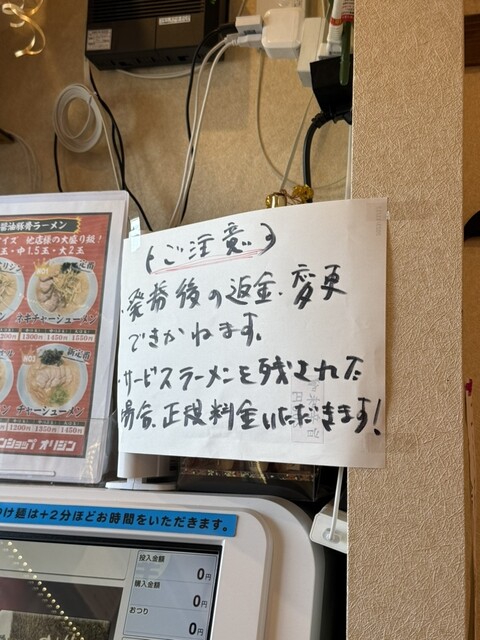 醤油豚骨ラーメン
イズ 他店様の大盛り級！
玉・中1.5玉・大2玉
ネギチャーシューメン
1200円 1300円 1450円 1550円
チャーシューメン
ンショップ オリジン
ご注意
・発券後の返金、変更
できかねます。
・サービスラーメンを残された
場合、正規料金いただきます!
け麺は+2分ほどお時間をいただきます。
投入金額
0円
購入金額
0円
おつり
0円